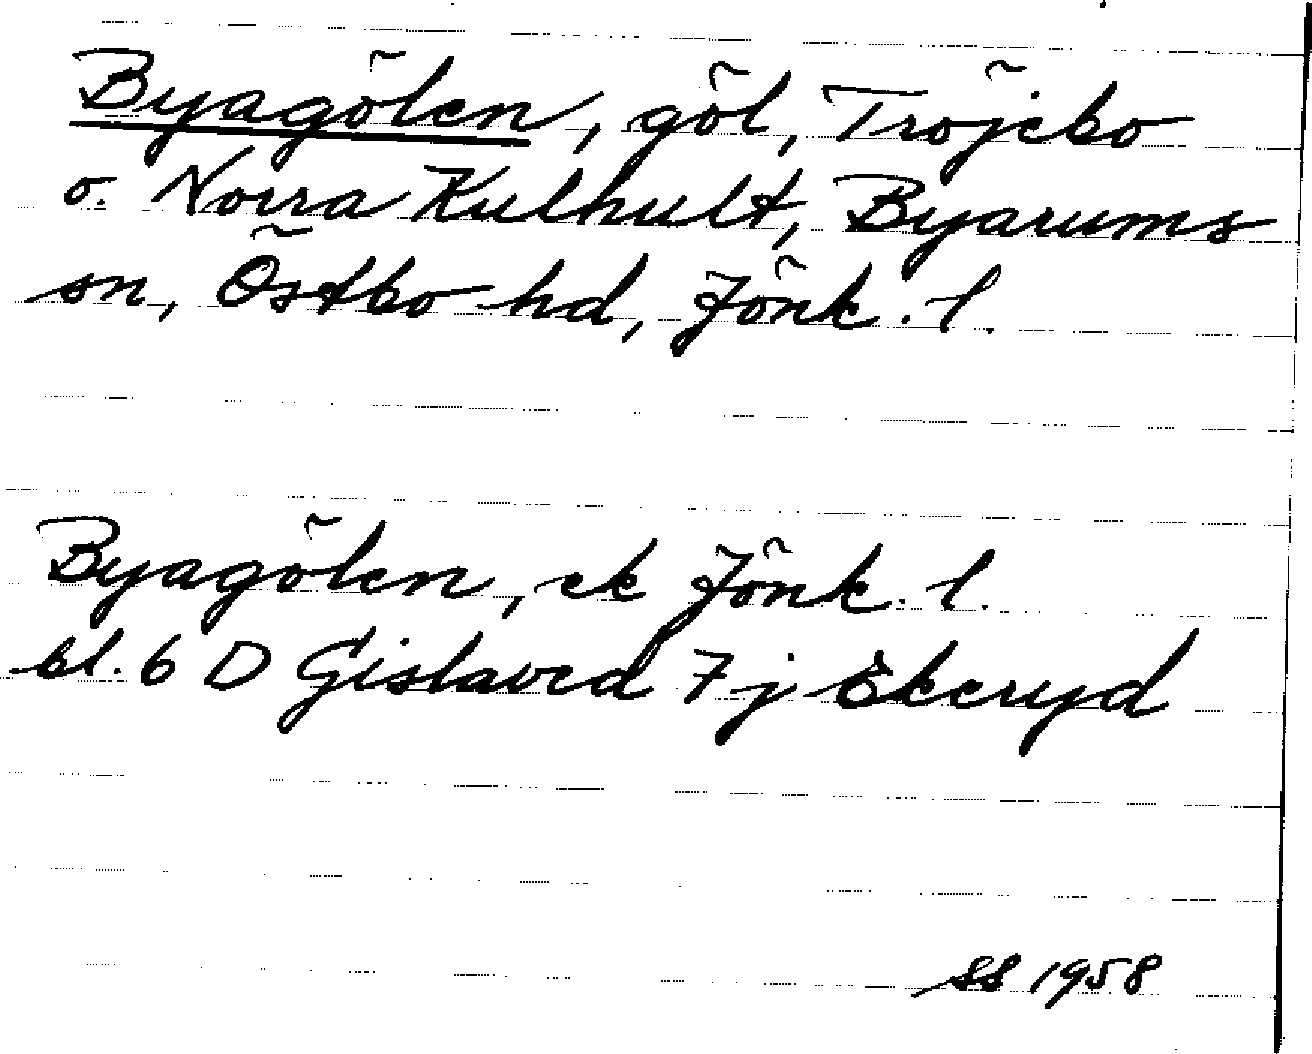 Byagölen, göl, Tröjebo
o. Norra Kulhult, Byarums
sn, Östbo hd, Jönk. l.
Byagölen, ek Jönk. l.
bl. 6 D Gislaved 7 j Ekeryd
SS 1958